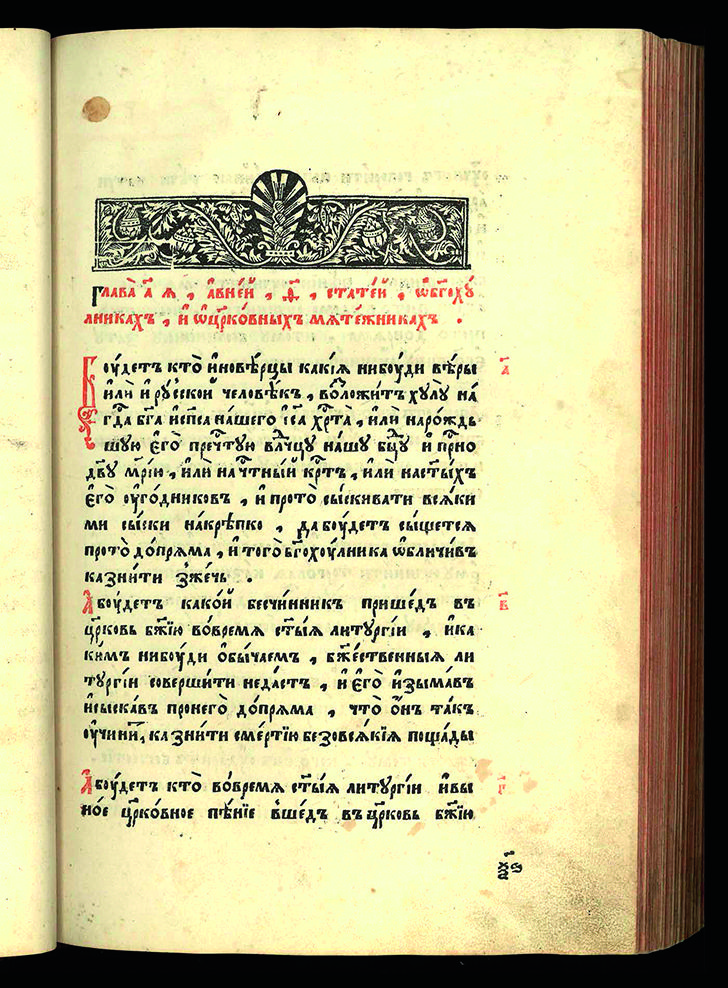 глава̀ а҃ я , а҆ внеи҆ , ѳ҃ , стате́й , ѡ҆бг҃оху
лникахъ , и҆ ѡ҆цр҃ко́вныхъ мяте́жникахъ .
Бꙋ́детъ кто̀ и҆новѣ́рцы какі́я нибꙋди вѣ́ры а҃
и҆лѝ и҆ рꙋ́ской человѣ́къ , возло́житъ хꙋлꙋ̀ на́
гд҃а бг҃а и҆ сп҃са на́шего і҆с҃а хр҃та̀ , и҆лѝ наро́ждь
шꙋю є҆го̀ преч҃тꙋю вл҃чцꙋ нашꙋ бц҃ꙋ и҆ прн҃о
дв҃ꙋ мр҃і́ю , и҆лѝ на ч҃тны́й кр҃тъ , и҆лѝ на ст҃ы́хъ
є҆го̀ ᲂу҆го́дниковъ , и҆ про то̀ сы́скивати вся́ки
ми сы́ски накрѣ́пко , да бꙋ́детъ сы́щется
про то̀ до́пряма , и҆ того̀ бг҃охꙋ́лника ѡ҆бличи́въ
казни́ти зже́чь .
А бꙋ́детъ како́й безчи́нникъ прише́дъ въ в҃
цр҃ковь бж҃їю во́время ст҃ы́я литꙋргі́и , и҆ ка
ки́мъ нибꙋ́ди ѻ҆бы́чаемъ , бж҃е́ственныя ли
тꙋргі́и соверши́ти неда́стъ , и҆ є҆го̀ и҆зыма́въ
и҆ сыска́въ про него̀ до́пряма , что̀ ѻ҆́нъ та́къ
ᲂу҆чини́тъ, казни́ти сме́ртїю безо всякїя поща́ды
А бꙋ́детъ кто̀ во́время ст҃ы́я литꙋргі́и и҆ въ и г҃
но́е цр҃ко́вное пѣ́нїе вше́дъ въ цр҃ковь бж҃їю